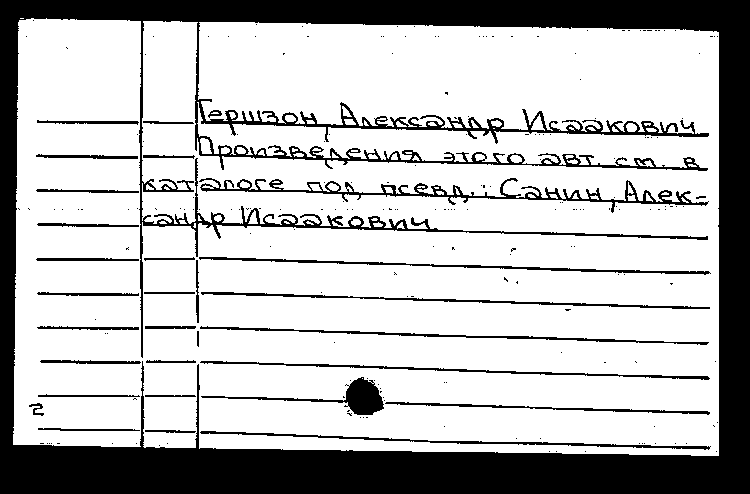 Гершзон, Александр Исаакович
Произведения этого авт. см. в
каталоге под псевд.: Санин, Алек-
сандр Исаакович.
2